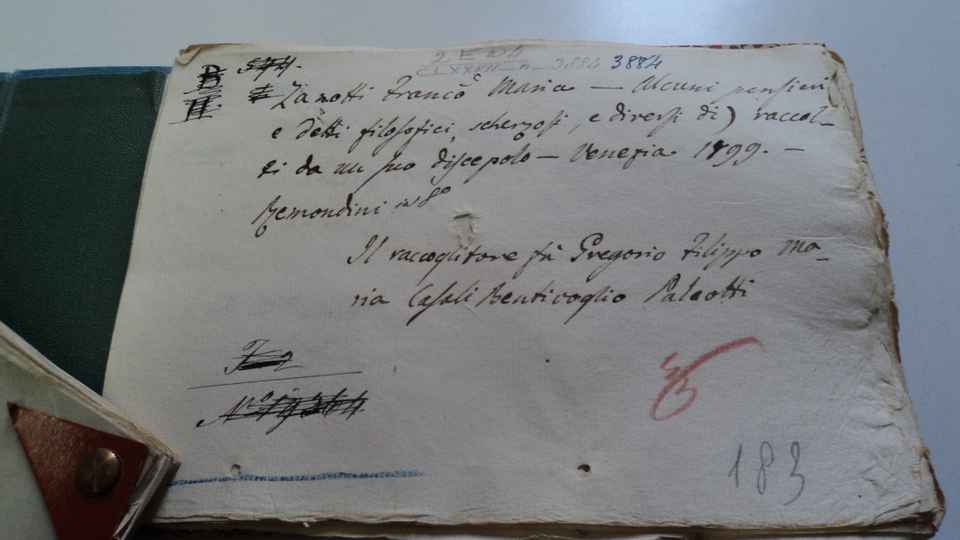 B 574. 3884 3884
II
Zanotti Franc.o Maria — Alcuni pensieri
e detti filosofici, scherzosi, e diversi di) raccol-
ti da un suo discepolo — Venezia 1799. —
Remondini in 8o
Il raccoglitore fù Gregorio Filippo Ma-
ria Casali Bentivoglio Paleotti
F 2
183